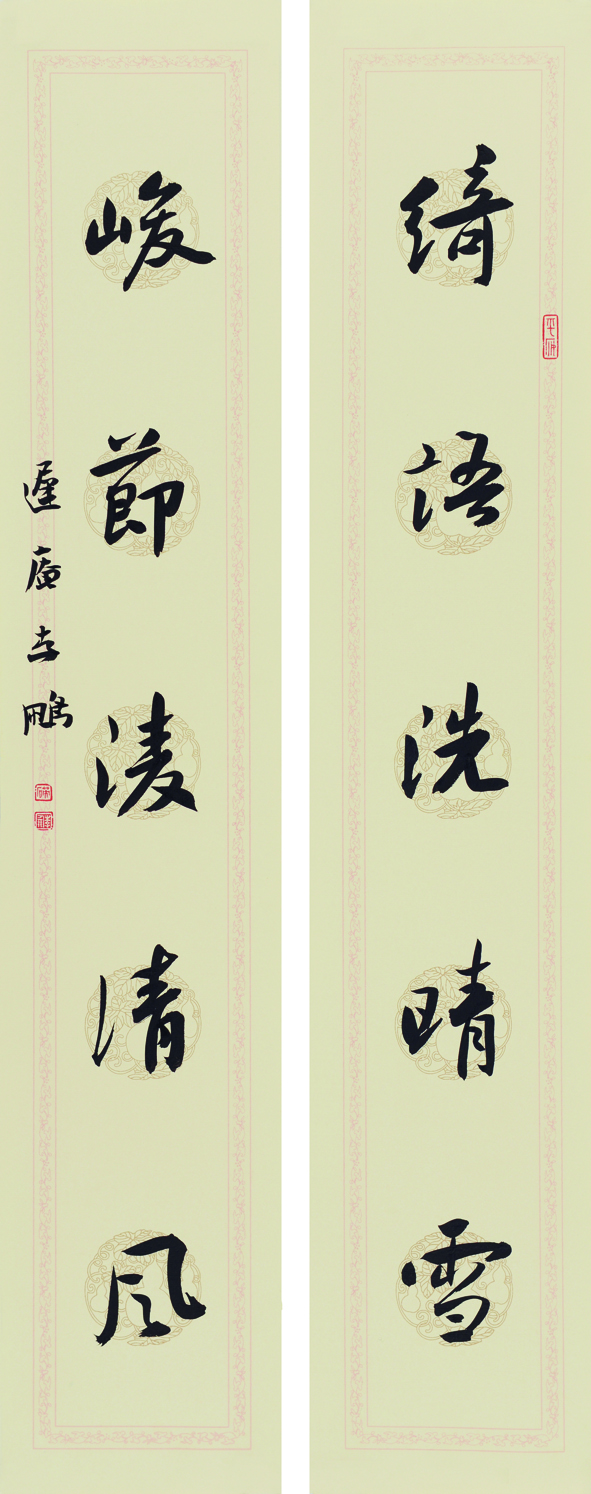 绮语洗晴雪
峻節凌清风
遲庵志鵬